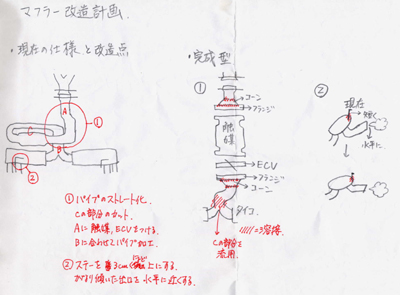 マフラー改造計画.
・現在の仕様と改造点
・完成型
①
コーン
フランジ
触媒
ECV
フランジ
コーン
タイコ.
=溶接.
Cの部分を
流用.
②
現在
短く
水平に
A
C
B
①
②
①パイプのストレート化.
Cの部分のカット.
Aに触媒,ECVをつける.
Bに合わせてパイプ加工.
②ステーを
3cmほど
上にする.
傾いた出口を水平に近くする.